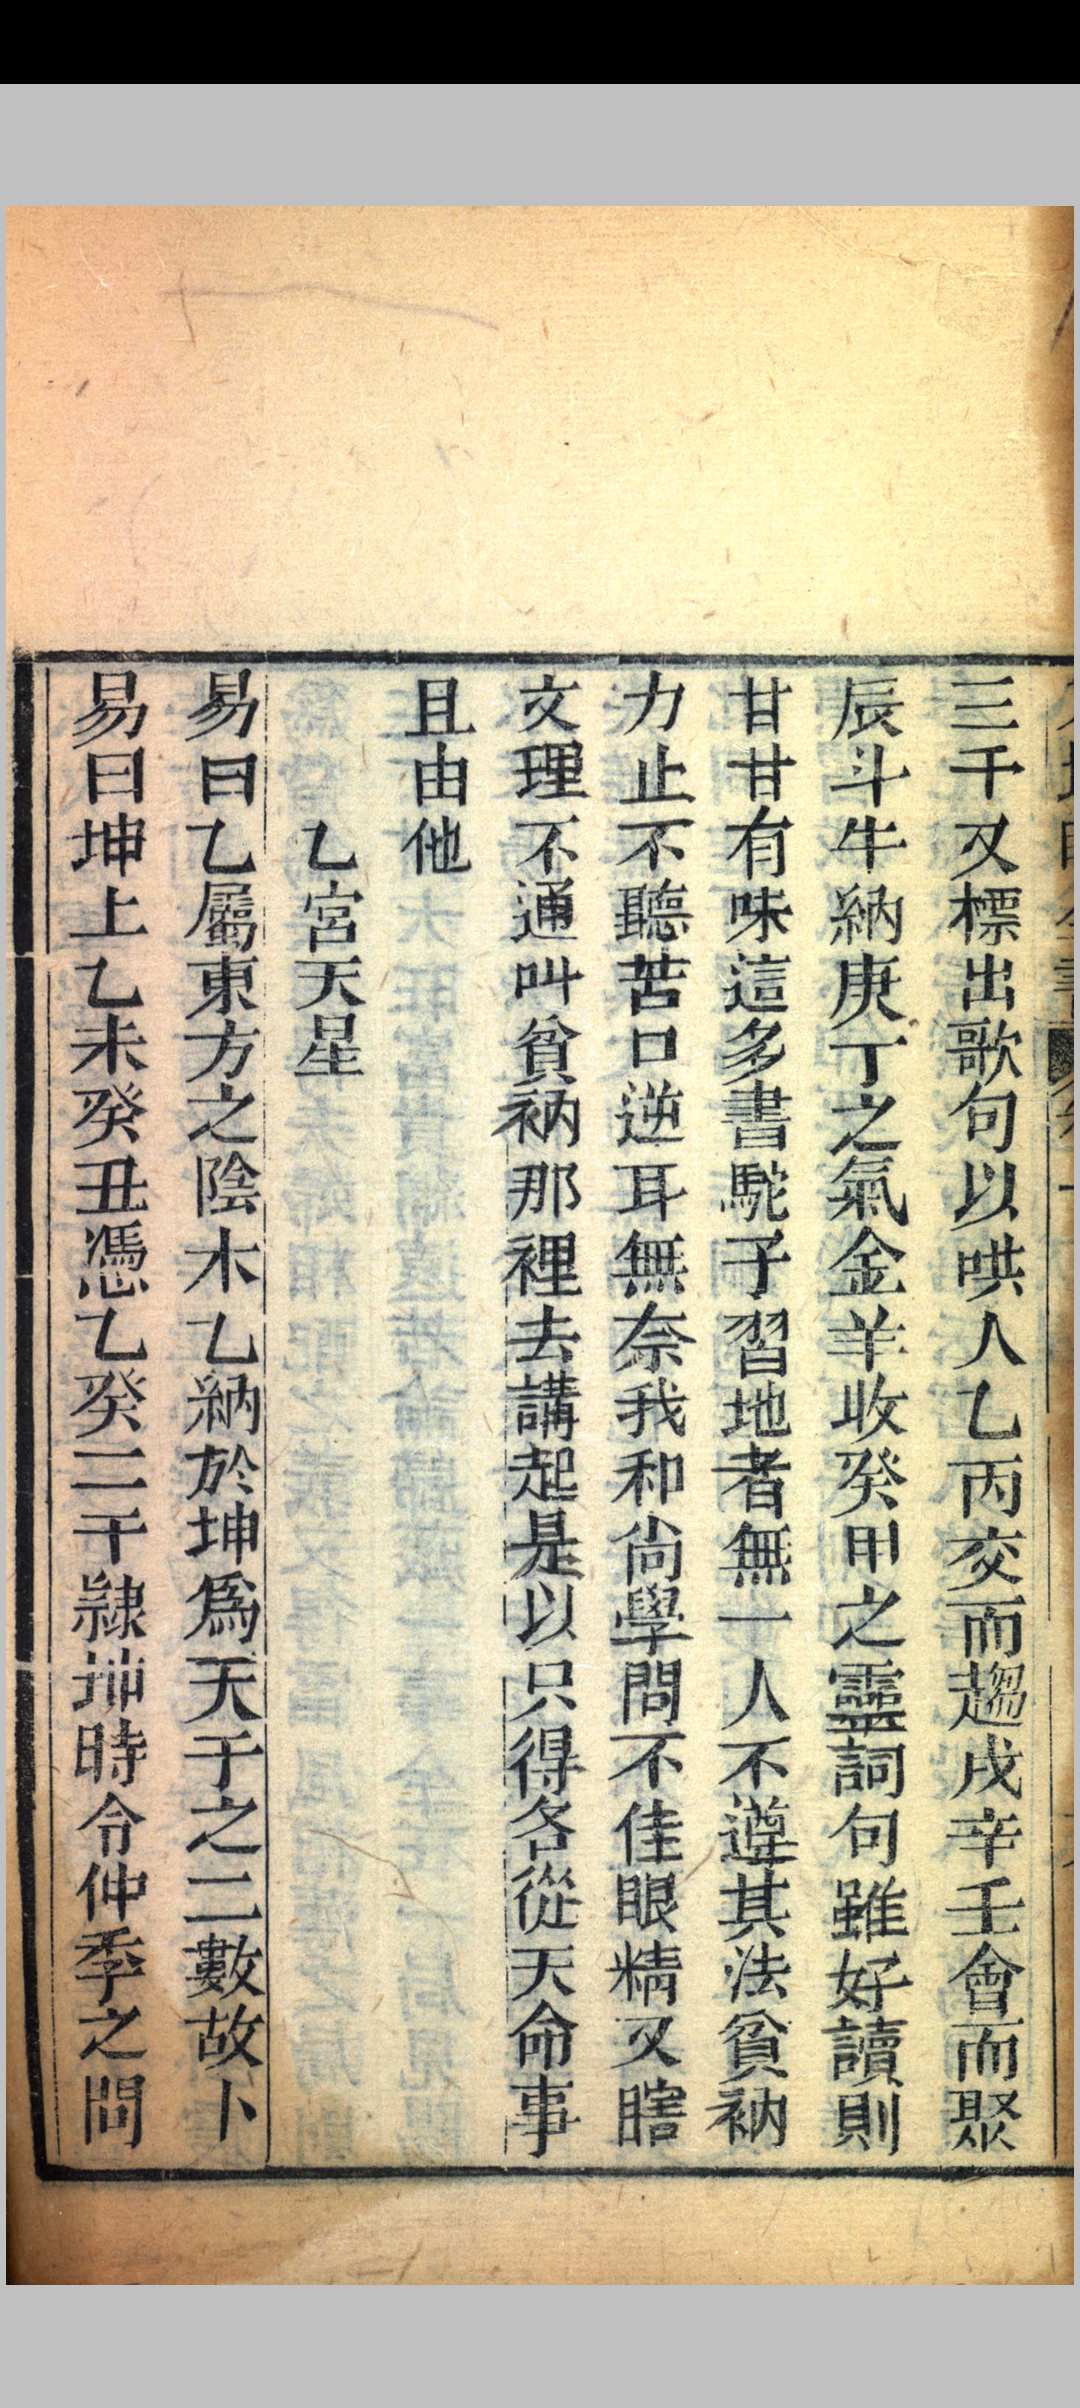 三千又標出歌句以哄人乙丙交而趨戍辛壬會而聚
辰斗牛納庚丁之氣金羊收癸甲之靈詞句雖好讀則
甘甘有味這多書駝子習地者無一人不遵其法貧衲
力止不聽苦口逆耳無奈我和尙學問不佳眼精又瞎
文理不通叫貧衲那裡去講起是以只得各從天命事
且由他
乙宮天星
易曰乙屬東方之陰木乙納於坤爲天干之二數故卜
易曰坤上乙未癸丑憑乙癸二干隷坤時令仲季之間